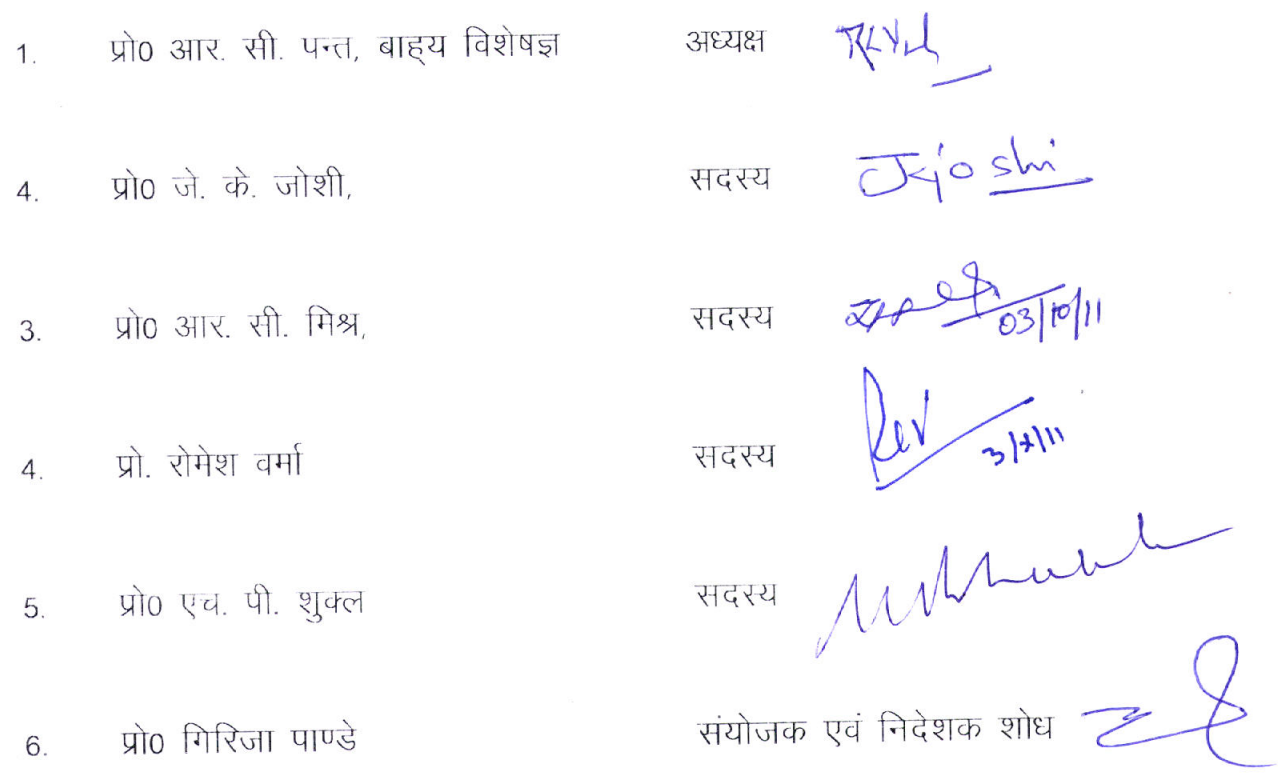 1. प्रो0 आर. सी. पन्त, बाह्य विशेषज्ञ अध्यक्ष
4. प्रो0 जे. के. जोशी, सदस्य JKJoshi
3. प्रो0 आर. सी. मिश्र, सदस्य 03/10/11
4. प्रो. रोमेश वर्मा सदस्य 3/x/11
5. प्रो0 एच. पी. शुक्ल सदस्य
6. प्रो0 गिरिजा पाण्डे संयोजक एवं निदेशक शोध